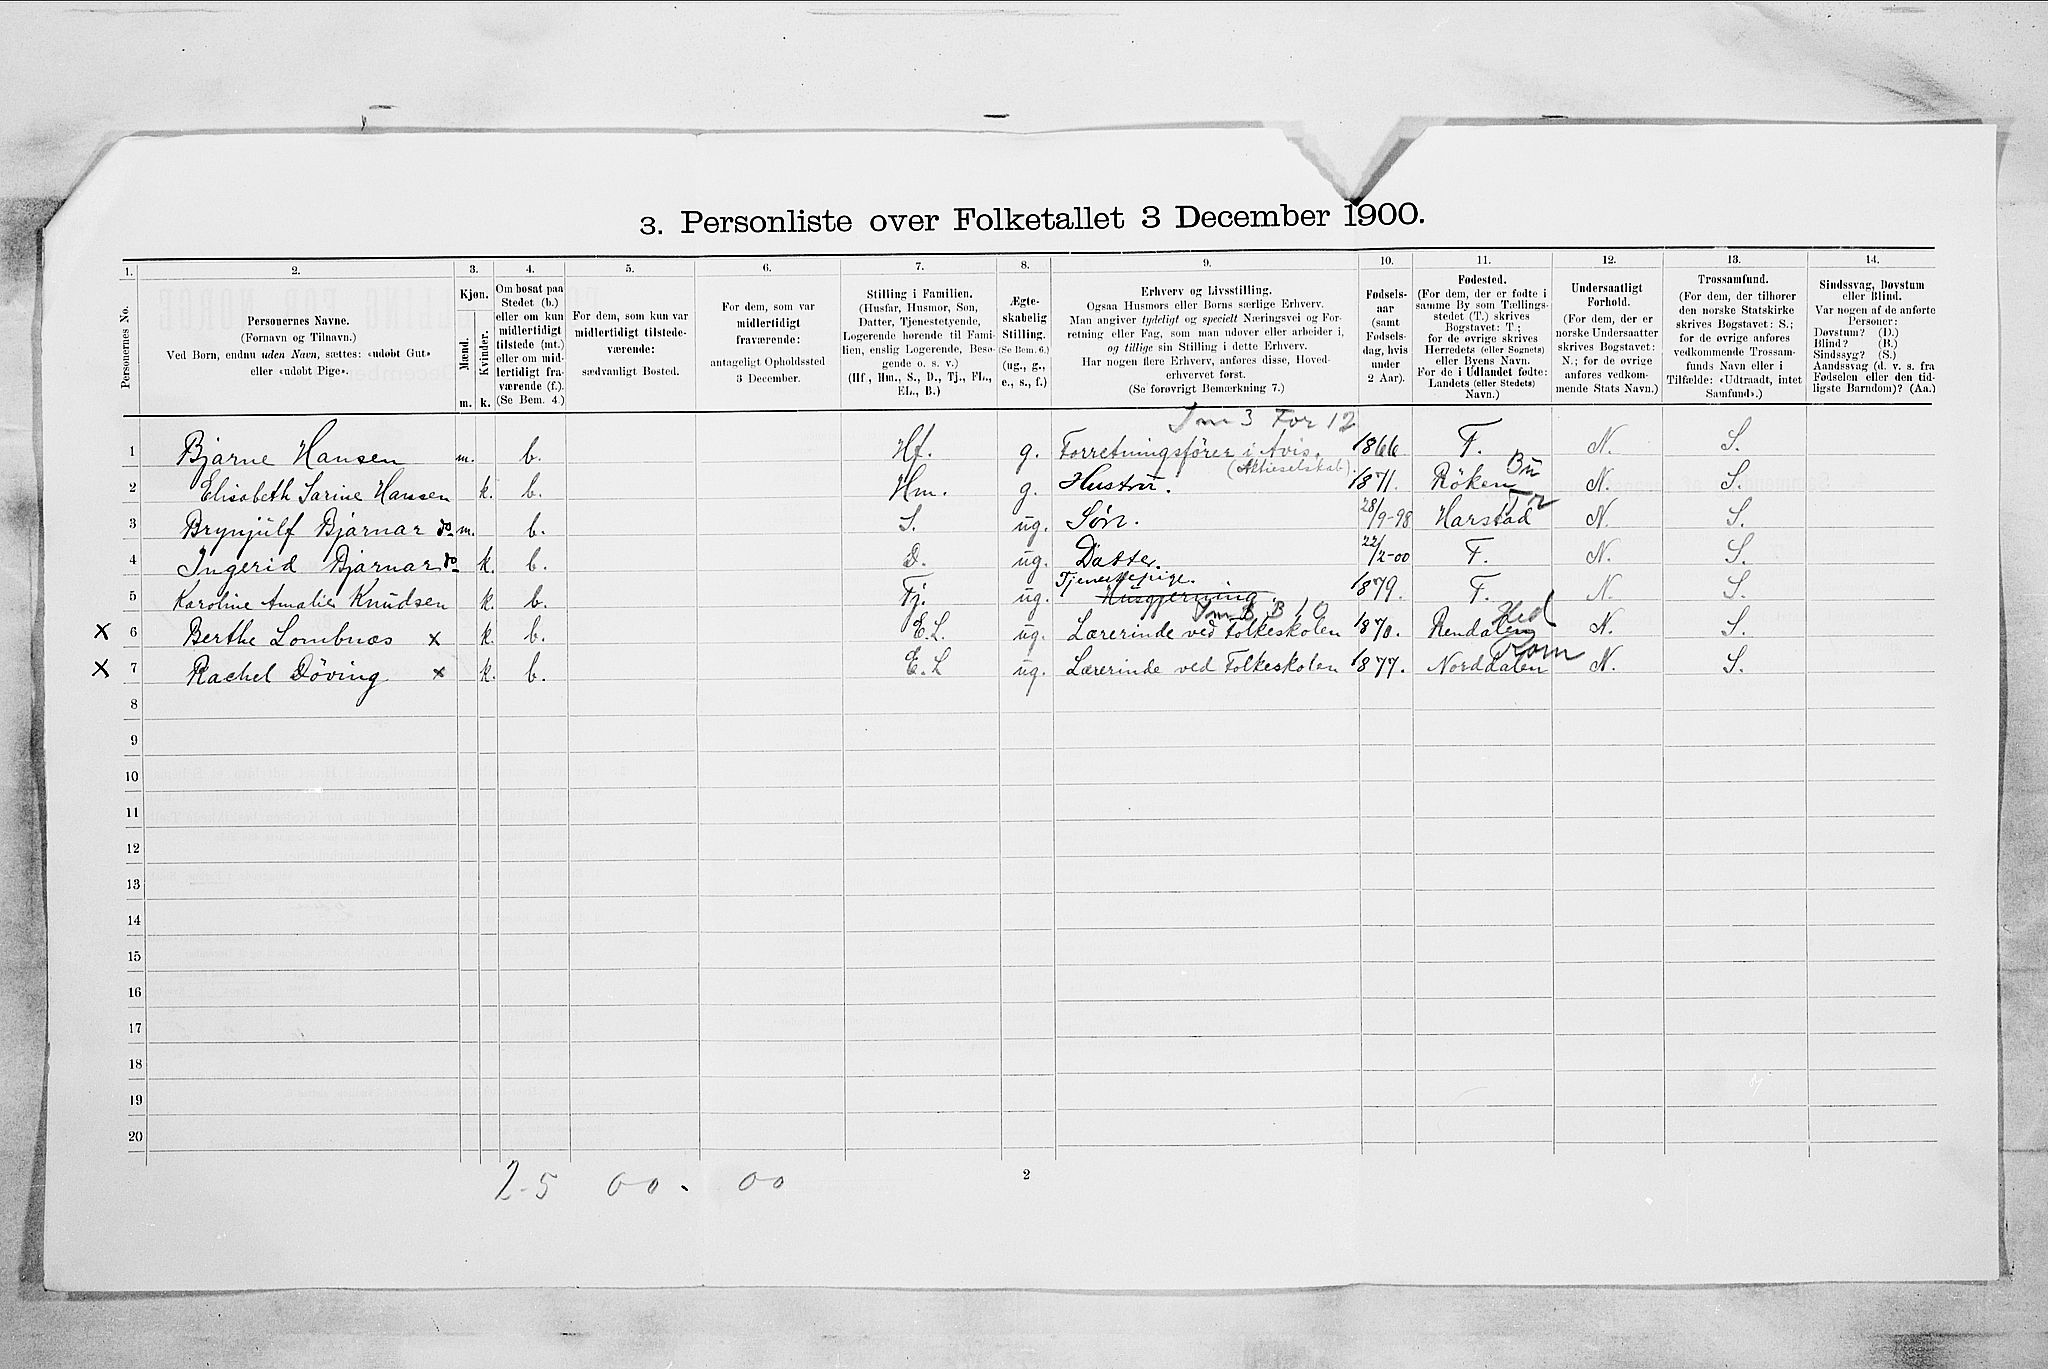 3. Personliste over Folketallet 3 December 1900.
1. 2. 3. 4. 5. 6. 7. 8. 9. 10. 11. 12. 13. 14.
Personernes No.
Personernes Navne.
(Fornavn og Tilnavn.)
Ved Børn, endnu uden Navn, sættes: «udøbt Gut»
eller «udøbt Pige».
Kjøn.
Mænd.
Kvinder.
m. k.
Om bosat paa
Stedet (b.)
eller om kun
midlertidigt
tilstede (mt.)
eller om mid-
lertidigt fra-
værende (f.).
(Se Bem. 4.)
For dem, som kun var
midlertidigt tilstede-
værende:
sædvanligt Bosted.
For dem, som var
midlertidigt
fraværende:
antageligt Opholdssted
3 December.
Stilling i Familien.
(Husfar, Husmor, Søn,
Datter, Tjenestetyende,
Logerende hørende til Fami-
lien, enslig Logerende, Besø-
gende o. s. v.)
(Hf., Hm., S., D., Tj., FL.,
EL., B.)
Ægte-
skabelig
Stilling.
(Se Bem. 6.)
(ug., g.,
e., s., f.)
Erhverv og Livsstilling.
Ogsaa Husmors eller Børns særlige Erhverv.
Man angiver tydeligt og specielt Næringsvei og For-
retning eller Fag, som man udøver eller arbeider i,
og tillige sin Stilling i dette Erhverv.
Har nogen flere Erhverv, anføres disse, Hoved-
erhvervet først.
(Se forøvrigt Bemærkning 7.)
Fødsels-
aar
(samt
Fødsels-
dag, hvis
under
2 Aar).
Fødested.
(For dem, der er fødte i
samme By som Tællings-
stedet (T.) skrives
Bogstavet: T.;
for de øvrige skrives
Herredets (eller Sognets)
eller Byens Navn.
For de i Udlandet fødte:
Landets (eller Stedets)
Navn.)
Undersaatligt
Forhold.
(For dem, der er
norske Undersaatter
skrives Bogstavet:
N.; for de øvrige
anføres vedkom-
mende Stats Navn.)
Trossamfund.
(For dem, der tilhører
den norske Statskirke
skrives Bogstavet: S.;
for de øvrige anføres
vedkommende Trossam-
funds Navn eller i
Tilfælde: «Udtraadt, intet
Samfund».)
Sindssvag, Døvstum
eller Blind.
Var nogen af de anførte
Personer:
Døvstum? (D.)
Blind? (B.)
Sindssyg? (S.)
Aandssvag (d. v. s. fra
Fødselen eller den tid-
ligste Barndom)? (Aa.)
3 For 12
1 Bjarne Hansen m. b. Hf. g. Forretningsfører i Avis. 1866 F. N. S.
(Aktieselskab).
Bu
2 Elisabeth Sarine Hansen k. b. Hm. g. Hustru. 1871. Röken N. S.
Tr
3 Brynjülf Bjarnar do m. b. S. ug. Søn. 28/9-98 Harstad N. S.
4 Ingerid Bjarnar do k. b. D. ug. Datter. 22/2-00 F. N. S.
Tjenestepige.
5 Karoline Amalie Knudsen k. b. Tj. ug. Husgjerning. 1879. F. N. S.
B 10 Hed
x 6 Berthe Lombnæs x k. b. E.L. ug. Lærerinde ved Folkeskolen 1870. Rendalen N. S.
Rom
x 7 Rachel Döving x k. b. E.L ug. Lærerinde ved Folkeskolen 1877. Norddalen N. S.
8
9
10
11
12
13
14
15
16
17
18
19
20
2-5 00. 00
2